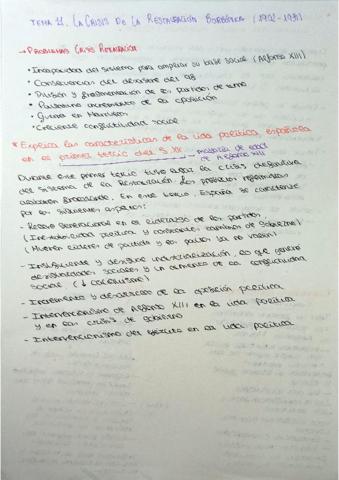 TEMA 11. LA CRISIS DE LA RESTAURACIÓN BORBÓNICA (1902-1931)
→ PROBLEMAS CRISIS RESTAURACIÓN
• Incapacidad del sistema para ampliar su base social (Alfonso XIII)
• Consecuencias del desastre del 98
• División y fragmentación de los partidos de turno
• Paulatino incremento de la oposición
• Guerra en Marruecos
• Creciente conflictividad social
* Explica las características de la vida política española
en el primer tercio del S.XX → mayoría de edad
de Alfonso XIII
Durante este primer tercio tuvo lugar la crisis definitiva
del sistema de la Restauración. Los proyectos reformistas
acabaron fracasando. En este tercio, España se caracteriza
por los siguientes aspectos:
- Relevo generacional en el liderazgo de los partidos.
(Inestabilidad política y continuos cambios de Gobierno)
(Mueren líderes de partido y los pactos ya no valen)
- Insuficiente y desigual industrialización, lo que generó
desigualdades sociales y un aumento de la conflictividad
social
- Incremento y desarrollo de la oposición política
- Intervencionismo de Alfonso XIII en la vida política
y en las crisis de gobierno
- Intervencionismo del ejército en la vida política